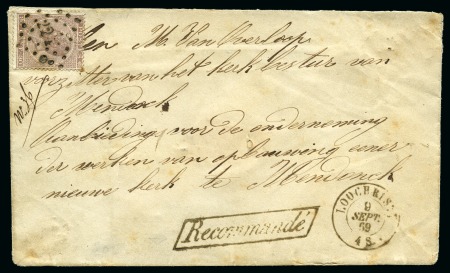 Den M. Van Overloop
voorzitter van het kerkbestuur van
Mendonck
Aanbieding voor de onderneming
der werken van opbouwing eener
nieuwe kerk te Mendonck
Recommandé
LOOCHRIS
9
SEPT.
69